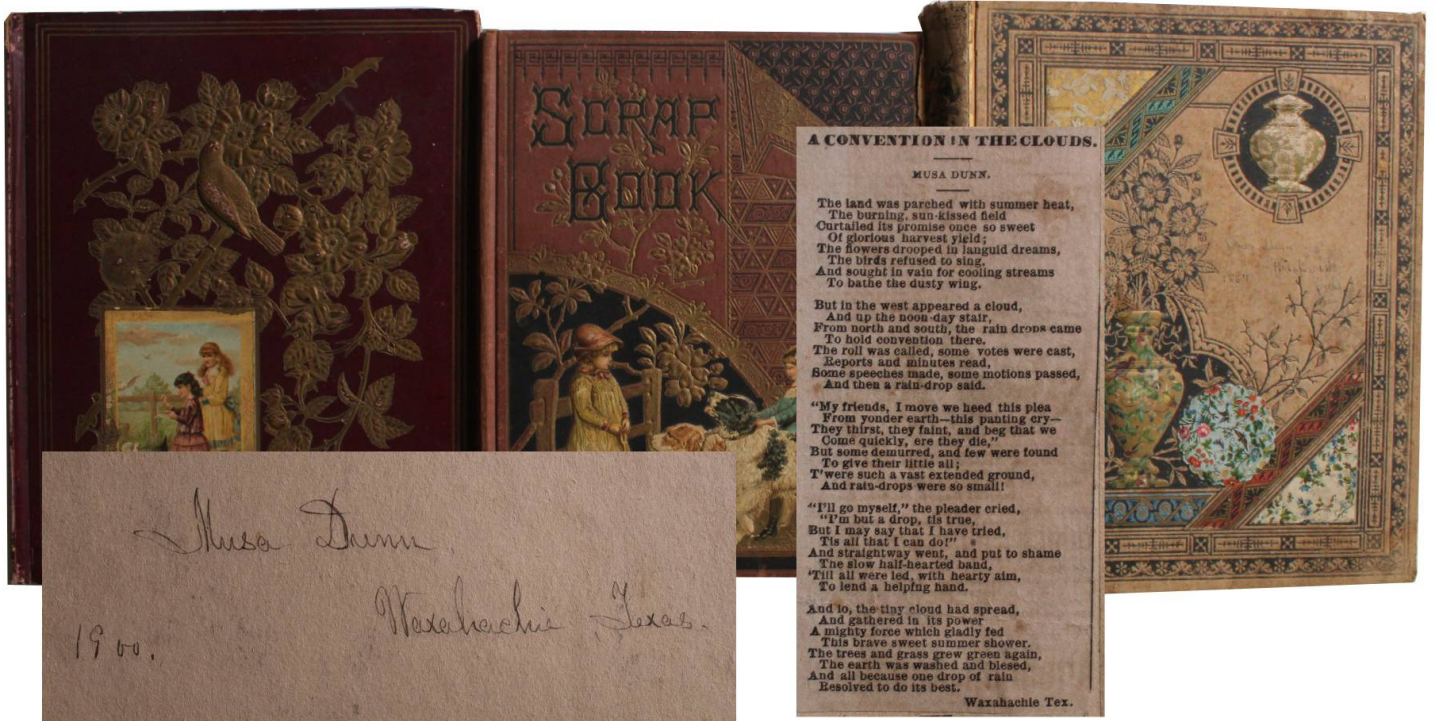 SCRAP
BOOK
A CONVENTION IN THE CLOUDS.
MUSA DUNN.
The land was parched with summer heat,
The burning, sun-kissed field
Curtailed its promise once so sweet
Of glorious harvest yield;
The flowers drooped in languid dreams,
The birds refused to sing,
And sought in vain for cooling streams
To bathe the dusty wing.
But in the west appeared a cloud,
And up the noon-day stair,
From north and south, the rain drops came
To hold convention there.
The roll was called, some votes were cast,
Reports and minutes read,
Some speeches made, some motions passed,
And then a rain-drop said.
"My friends, I move we heed this plea
From yonder earth—this panting cry—
They thirst, they faint, and beg that we
Come quickly, ere they die,"
But some demurred, and few were found
To give their little all;
T'were such a vast extended ground,
And rain-drops were so small!
"I'll go myself," the pleader cried,
"I'm but a drop, tis true,
But I may say that I have tried,
Tis all that I can do!"
And straightway went, and put to shame
The slow half-hearted band,
'Till all were led, with hearty aim,
To lend a helping hand.
And lo, the tiny cloud had spread,
And gathered in its power
A mighty force which gladly fed
This brave sweet summer shower.
The trees and grass grew green again,
The earth was washed and blesed,
And all because one drop of rain
Resolved to do its best.
Waxahachie Tex.
Musa Dunn.
Waxahachie Texas.
1900.